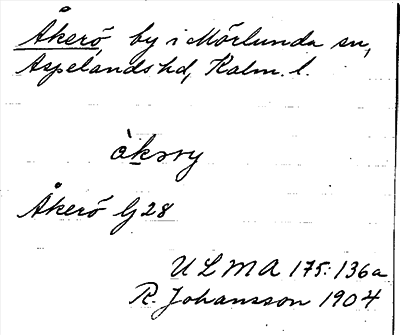 Åkerö, by i Mörlunda sn,
Aspelands hd, Kalm. l.
Åkerö G 28
ULMA 175:136a
R. Johansson 1904